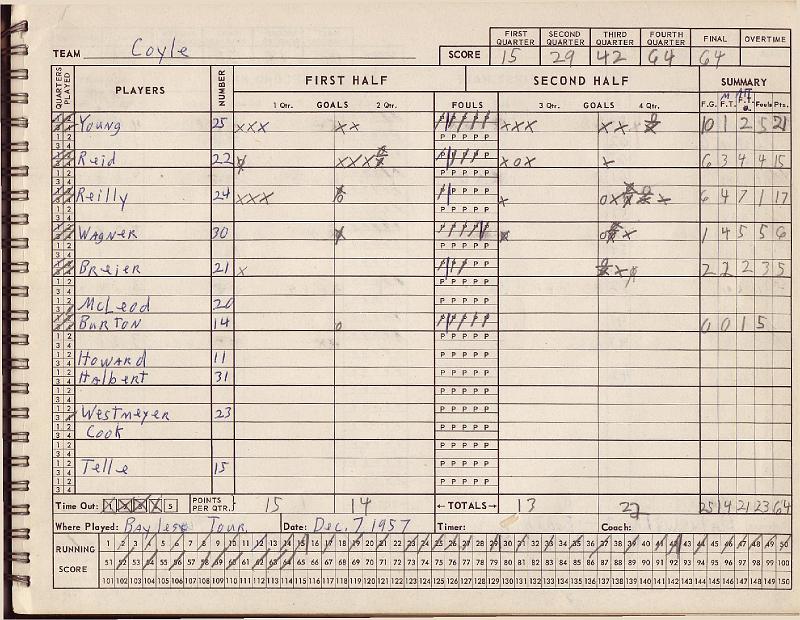 FIRST QUARTER SECOND QUARTER THIRD QUARTER FOURTH QUARTER FINAL OVERTIME
TEAM Coyle SCORE 15 29 42 64 64
QUARTERS PLAYED PLAYERS NUMBER FIRST HALF SECOND HALF SUMMARY
1 Qtr. GOALS 2 Qtr. FOULS 3 Qtr. GOALS 4 Qtr. F.G. F.T. F.T. Fouls Pts.
Young 25 XXX XX P P P P P XXX XX 10 1 2 5 21
P P P P P
Reid 22 XXX P P P P P XOX X 6 3 4 4 15
P P P P P
Reilly 24 XXX P P P P P X 6 4 7 1 17
P P P P P
Wagner 30 P P P P P 1 4 5 5 6
P P P P P
Breier 21 X P P P P P 2 2 3 5
P P P P P
McLeod 20
Burton 14 O P P P P P 0 0 1 5
P P P P P
Howard 11
Halbert 31
P P P P P
Westmeyer 23 P P P P P
Cook
P P P P P
Telle 15 P P P P P
P P P P P
Time Out: 1 2 3 4 5 POINTS PER QTR. 15 14 ←TOTALS→ 13 22 25 14 21 23 64
Where Played: Bayless Tour. Date: Dec. 7 1957 Timer: Coach:
RUNNING SCORE
1 2 3 4 5 6 7 8 9 10 11 12 13 14 15 16 17 18 19 20 21 22 23 24 25 26 27 28 29 30 31 32 33 34 35 36 37 38 39 40 41 42 43 44 45 46 47 48 49 50
51 52 53 54 55 56 57 58 59 60 61 62 63 64 65 66 67 68 69 70 71 72 73 74 75 76 77 78 79 80 81 82 83 84 85 86 87 88 89 90 91 92 93 94 95 96 97 98 99 100
101 102 103 104 105 106 107 108 109 110 111 112 113 114 115 116 117 118 119 120 121 122 123 124 125 126 127 128 129 130 131 132 133 134 135 136 137 138 139 140 141 142 143 144 145 146 147 148 149 150